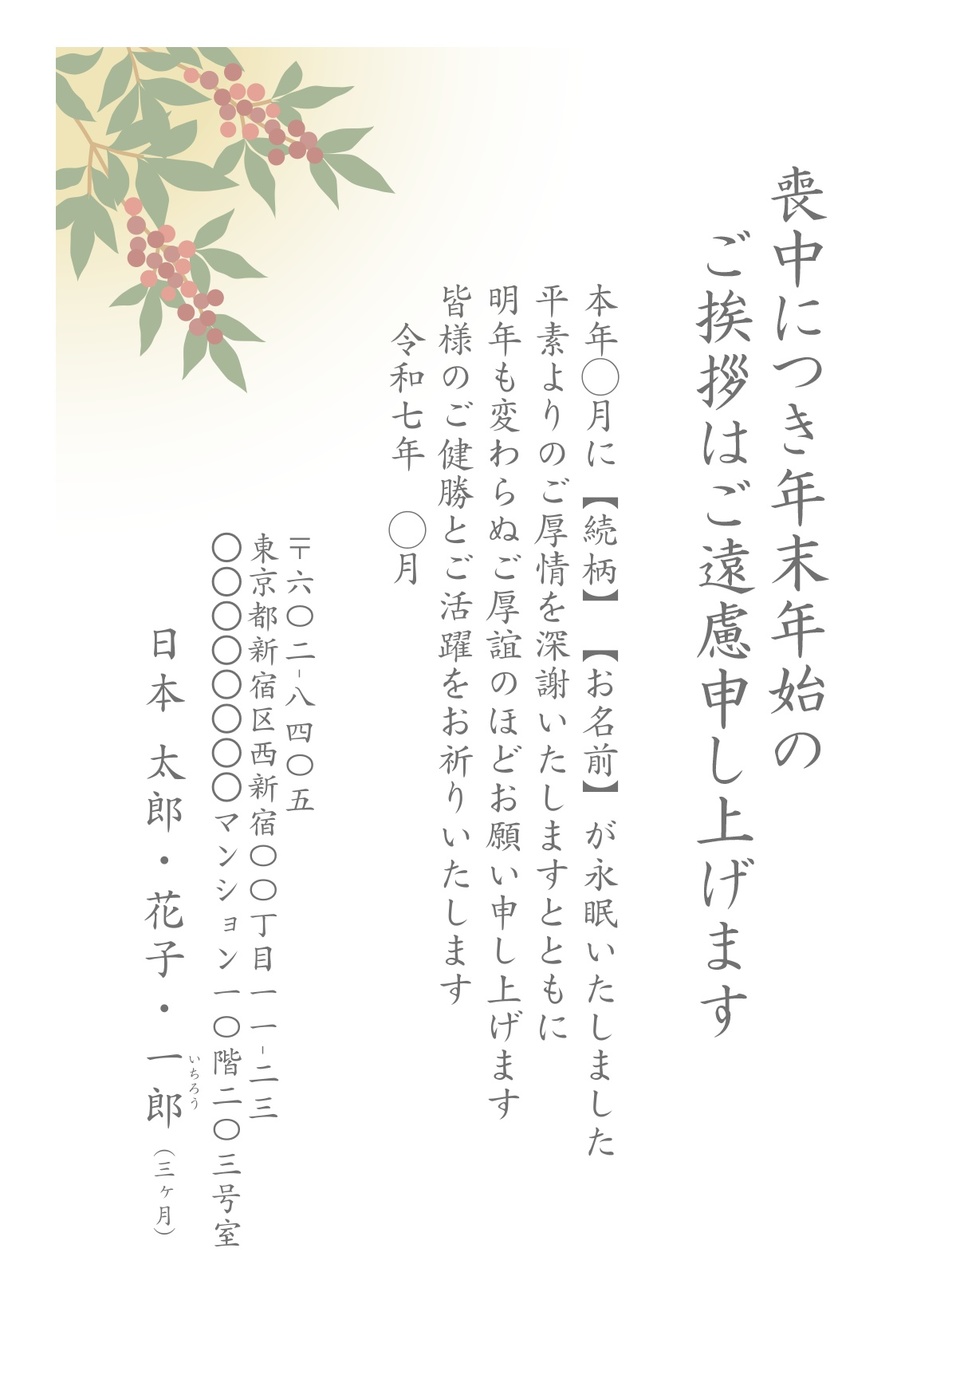 喪中につき年末年始の
ご挨拶はご遠慮申し上げます
本年◯月に【続柄】【お名前】が永眠いたしました
平素よりのご厚情を深謝いたしますとともに
明年も変わらぬご厚誼のほどお願い申し上げます
皆様のご健勝とご活躍をお祈りいたします
令和七年　◯月
〒六〇二-八四〇五
東京都新宿区西新宿〇〇丁目一一-二三
〇〇〇〇〇〇〇〇マンション一〇階二〇三号室
日本 太郎・花子・一郎（三ヶ月）
いちろう